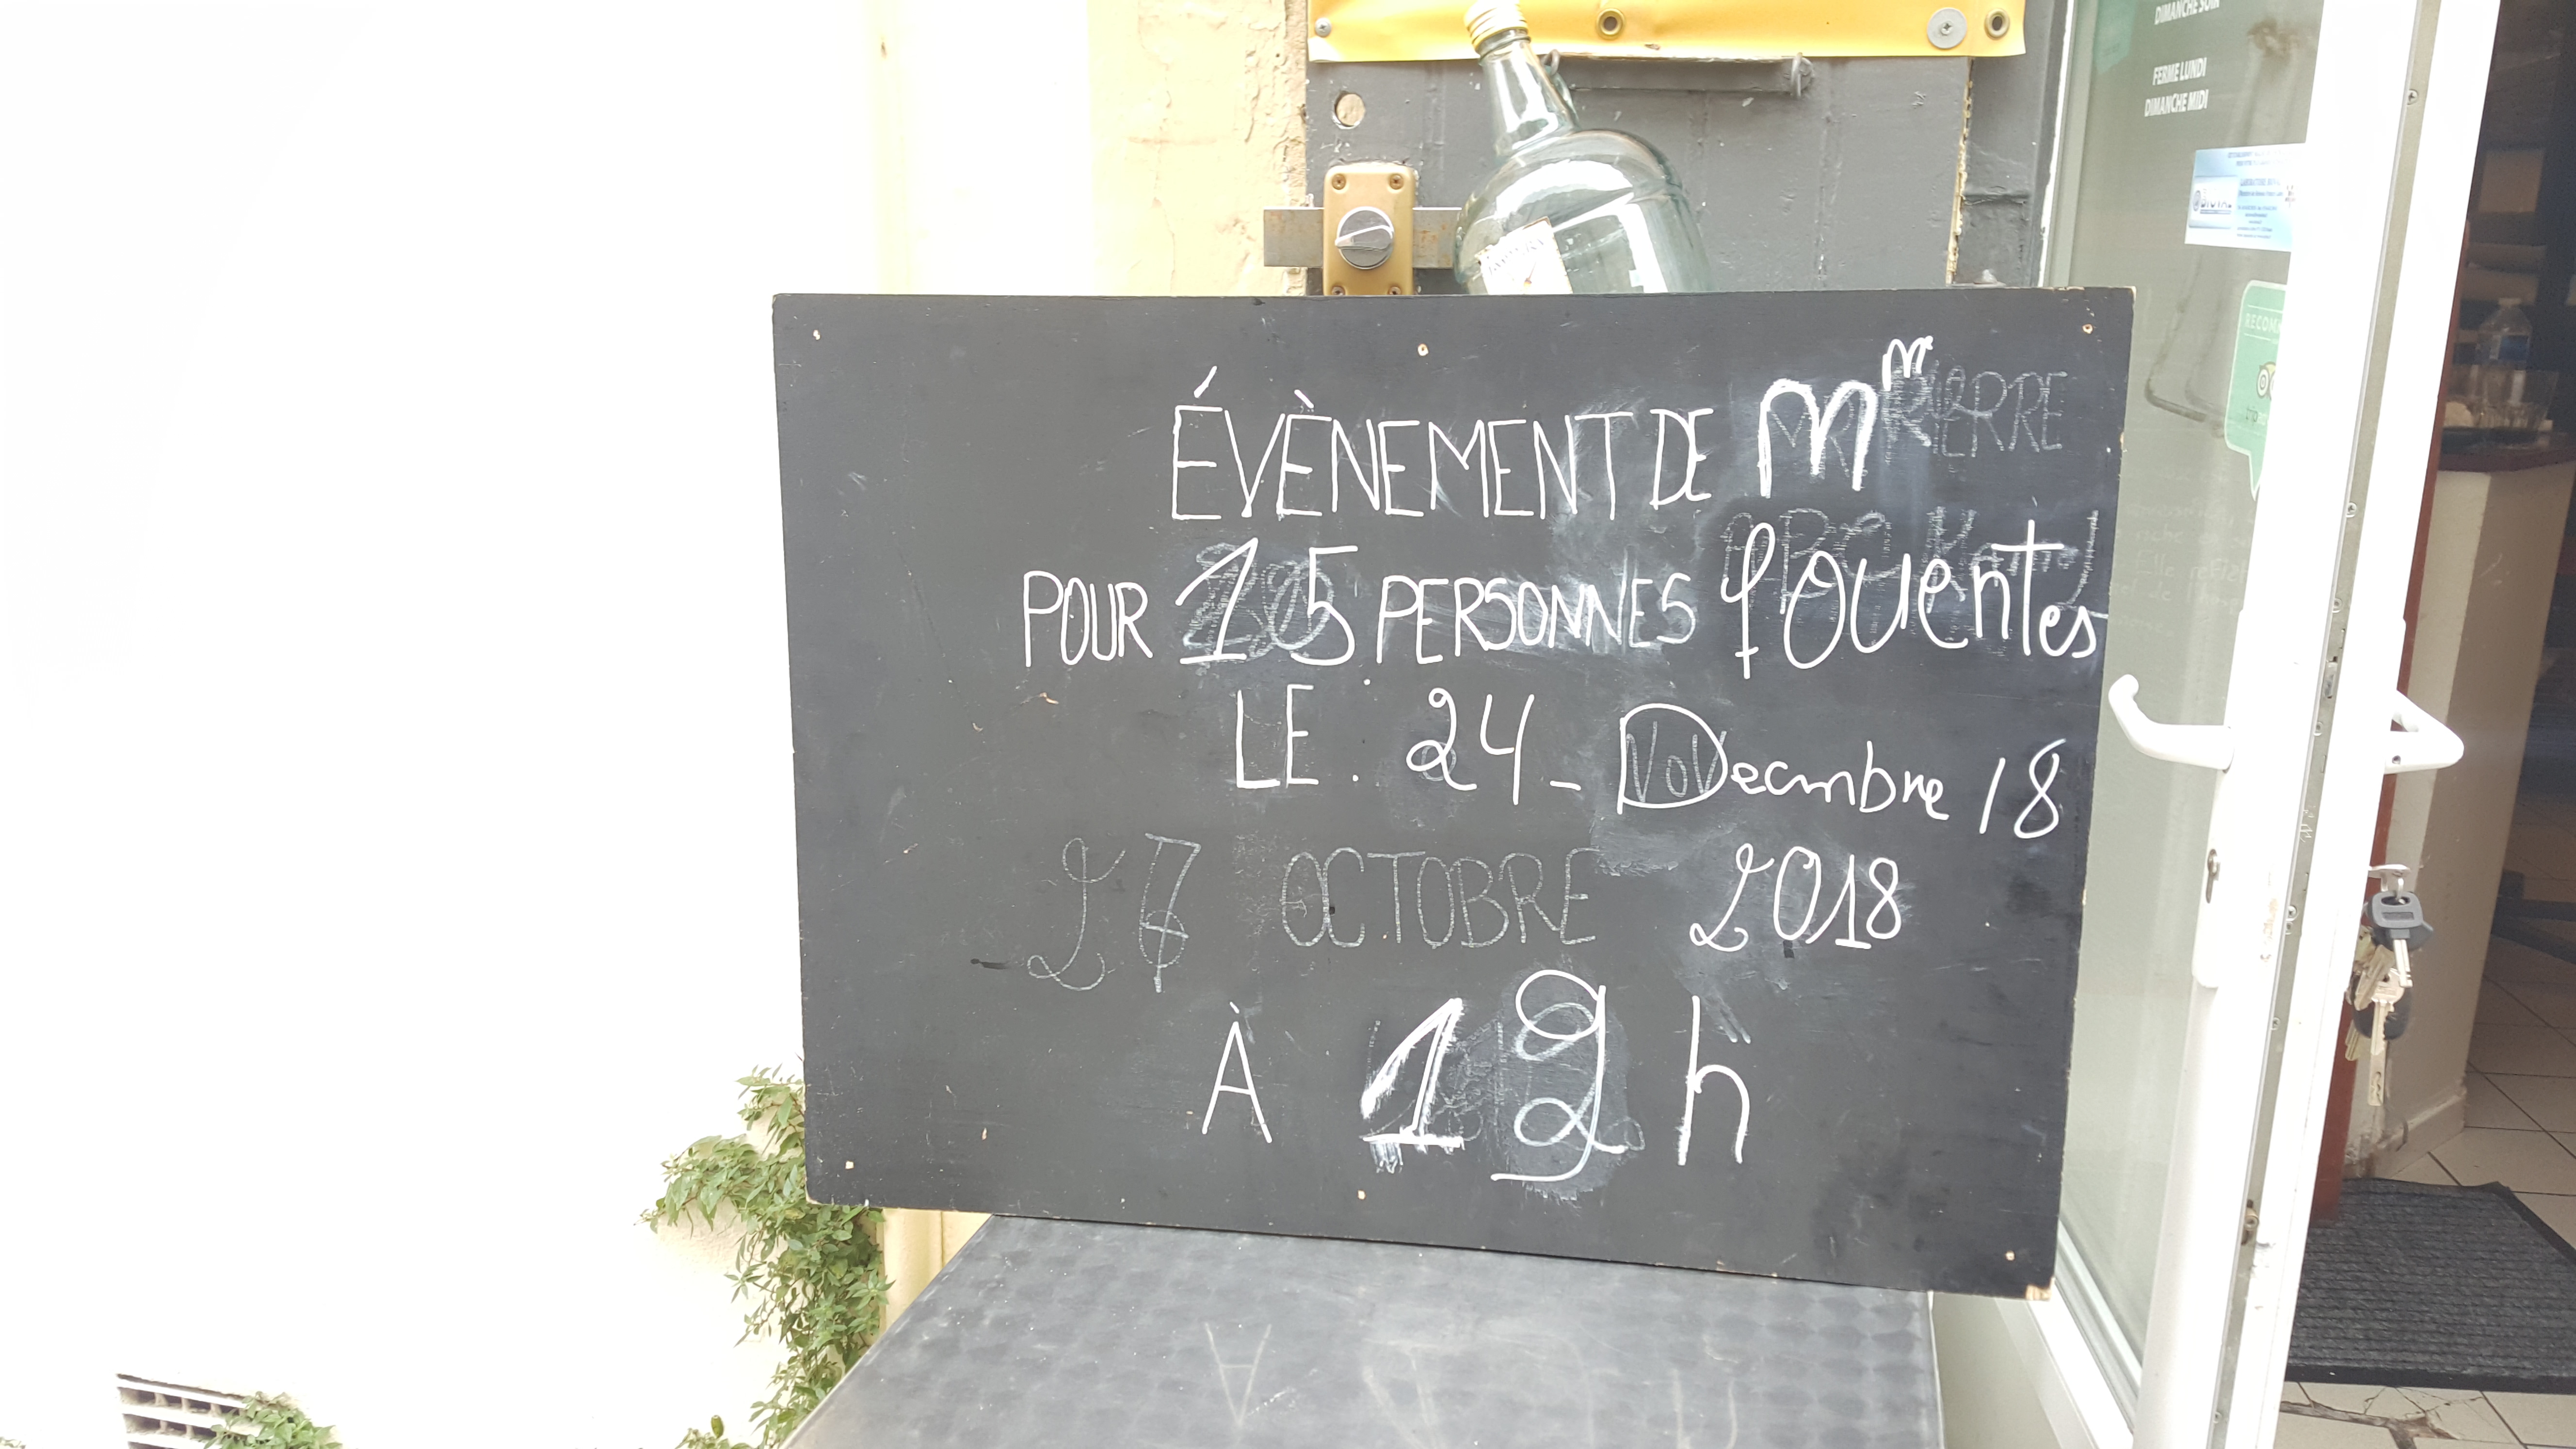 DIMANCHE SOIR
FERME LUNDI
DIMANCHE MIDI
RECOMM
ÉVÈNEMENT DE Mme
POUR 15 PERSONNES fouentes
LE . 24 - Decmbre 18
27 OCTOBRE 2018
À 19 h